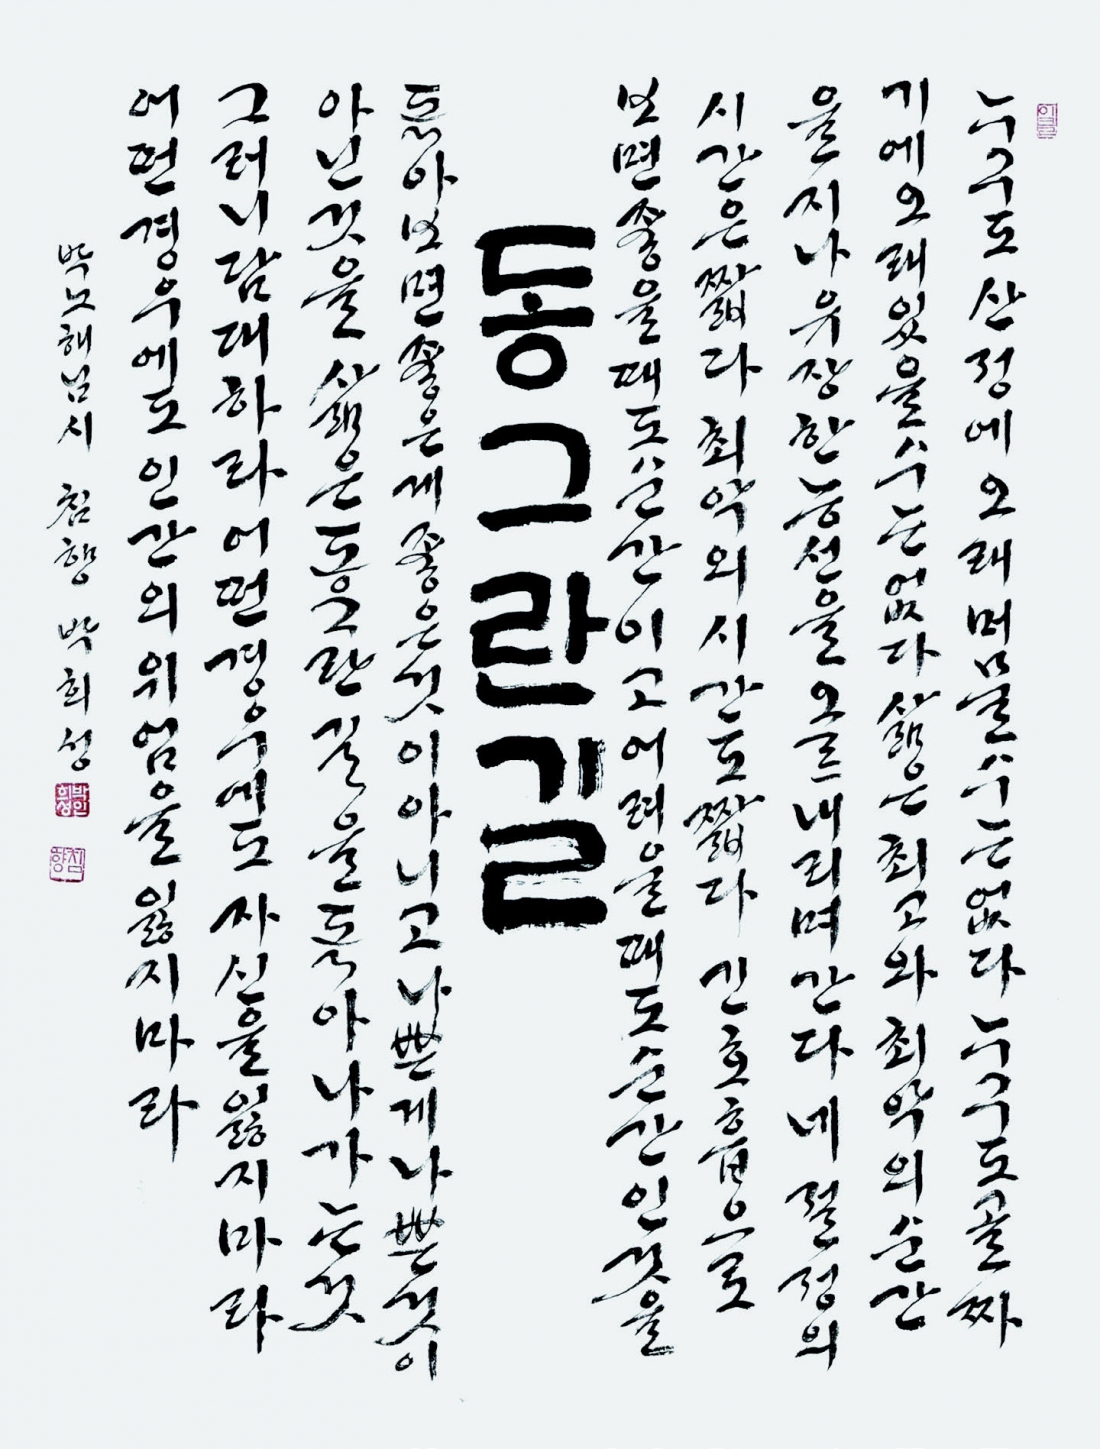 누구도산정에오래머물수는없다누구도골짜
기에오래있을수는없다삶은최고와최악의순간
을지나유장한능선을오르내리며간다네절정의
시간은짧다최악의시간도짧다긴호흡으로
보면좋을때도순간이고어려울때도순간인것을
동그란길
돌아보면좋은게좋은것이아니고나쁜게나쁜것이
아닌것을삶은동그란길을돌아나가는것
그러니담대하라어떤경우에도자신을잃지마라
어떤경우에도인간의위엄을잃지마라
박노해님시 침향 박희성
박희성인
침향